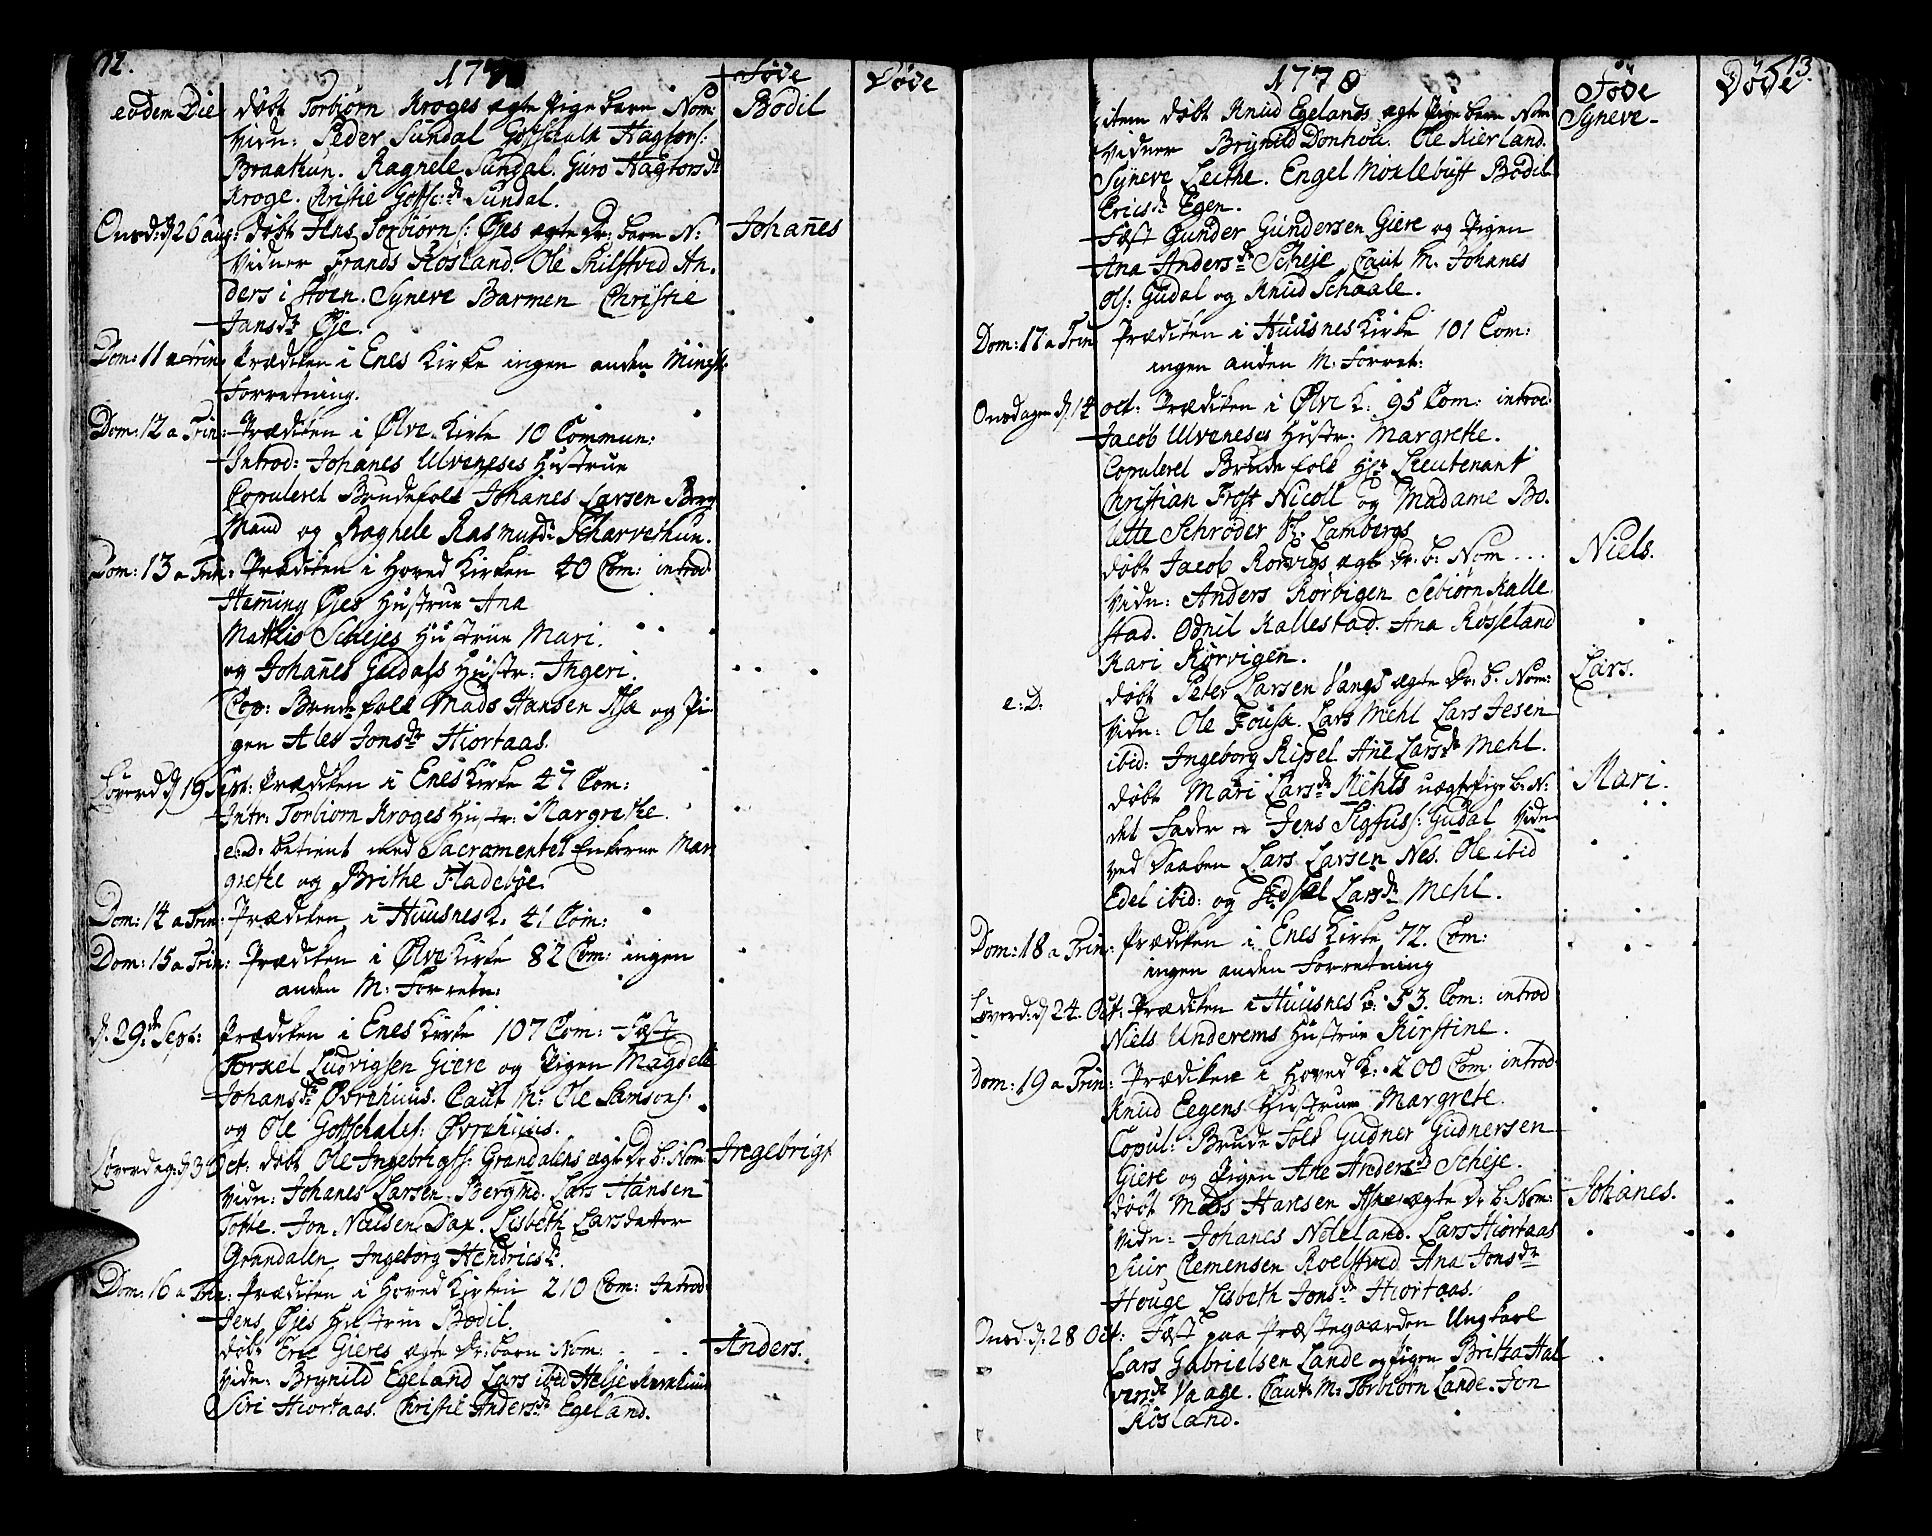 12.
1770
Føde
Døde
eodem Die døbt Torbiørn Kroges ægte Pige barn Nom: Bodil
Vidn: Peder Sundal Gottschalk Hagtors:
Braathun. Ragnele Sundal. Guro Hagtorsdr
Kroge. Christie Gottsc:dr Sundal.
Onsd: d 26 aug: døbt Jens Torbiørns: Øjes ægte Dr: barn N: Johanes
Vidner Frands Røsland. Ole Skilstved An-
ders i Støen. Syneve Barmen Christie
Jansdr Øje.
Dom: 11 a Trin Prædiken i Enes Kirke ingen anden Minist:
Forretning.
Dom: 12 a Trin: Prædiken i Ølve Kirke 10 Commun:
Introd: Johanes Ulveneses Hustrue
Copuleret Brudefolk Johanes Larsen Berg
Mand og Ragnele Rasmusdr Scharvethun.
Dom: 13 a Trin: Prædiken i Hoved Kirken 40 Com: introd
Heming Øjes Hustrue Ana
Mathis Schejes Hustrue Mari.
og Johanes Gudals Hustr: Ingeri.
Cop: Brudefolk Mads Hansen og Pi-
gen Ales Jonsdr Hiortaas.
Løverd d 19 Sept: Prædiken i Enes Kirke 47 Com:
Intr: Torbiørn Kroges Hustr: Margrethe.
e:D: betient med Sacramentet Enkerne Mar-
grethe og Brithe Fladebøe.
Dom: 14 a Trin: Prædiken i Huusnes K. 41 Com:
Dom: 15 a Trin: Prædiken i Ølve Kirke 82 Com: ingen
anden M: Forretn:
d. 29de Sept: Prædiken i Enes Kirke 107 Com: Fæst
Torkel Ludvigsen Giere og Pigen Magdele
Johansdr Øvrehuus. Caut M: Ole Samsons:
og Ole Gottschalcs: Øvrehuus.
Løverdag d 3 Oct: døbt Ole Ingebrigts: Grandalens ægte Dr b: Nom: Ingebrigt
Vidn: Johanes Larsen Bergmd. Lars Hansen
Tofte. Jon Nielsen Dax. Lisbeth Larsdatter
Grandalen Ingeborg Hendricsdr.
Dom: 16 a Trin: Prædiken i Hoved Kirken 210 Com: Introd:
Jens Øjes Hustrue Bodil.
døbt Eric Gieres ægte Dr: barn Nom: Anders.
Vidn: Brynild Egeland Lars ibid Helje
Siri Hiortaas. Christie Andersdr Egeland.
13.
1770
Føde
Døde
item døbt Knud Egelands ægte Pige barn Nom Syneve
Vidner Brynild Donhou. Ole Kierland.
Syneve Leithe. Engel Moxlebust Bodil
Ericsdr Egen.
Fæst Gunder Gundersen Giere og Pigen
Ana Andersdr Scheje Caut M. Johanes
Ols: Gudal og Knud Schaale.
Dom: 17 a Trin Prædiken i Huusnes Kirke 101 Com:
ingen anden M. Forret:
Onsdagen d. 14 oct: Prædiken i Ølve K: 95 Com: introd:
Jacob Ulveneses Hustr: Margrethe.
Copuleret Brudefolk Hr Lieutenant
Christian Frost Nicoll og Madame Bo-
lette Schrøder Sl: Lambergs
døbt Jacob Rørvigs ægte Dr: b: Nom Niels.
Vidn: Anders Rørvigen Sebiørn Kalle-
stad. Odnil Kallestad. Ana Røsseland
Kari Rørvigen.
e:D: døbt Peter Larsen Vangs ægte Dr: b: Nom: Lars.
Vidn: Ole Fousk. Lars Mehl Lars Jesen
ibid: Ingeborg Rissel Ane Larsdr Mehl.
døbt Mari Larsdr Mehls uægte Pige b: N: Mari.
det Fader er Jens Sigfuss: Gudal Vidn
ved Daaben Lars Larsen Nes. Ole ibid
Edel ibid: og Larsdr Mehl.
Dom: 18 a Trin: Prædiken i Enes Kirke 72. Com:
ingen anden Forretning
Løverd: d 24. Oct: Prædiken i Huusnes K: 53. Com: introd
Niels Underems Hustrue Kirstine.
Dom: 19 a Trin: Prædiken i Hoved K: 200 Com: introd:
Knud Eegens Hustrue Margrete.
Copul: Brude Folk Gudner Gudnersen
Giere og Pigen Ane Andersdr Scheje.
døbt Mads Hansen ægte Dr b: Nom: Johanes.
Vidn: Johanes Neleland. Lars Hiortaas
Siur Clemensen Roelstved Ana Jonsdr
Houge Lisbeth Jonsdr Hiortaas.
Onsd: d. 28 Oct: Fæst paa Præstegaarden Ungkarl
Lars Gabrielsen Lande og Pigen Britha Hal-
versdr Vaage. Caut: M: Torbiørn Lande. Jon
Røsland.